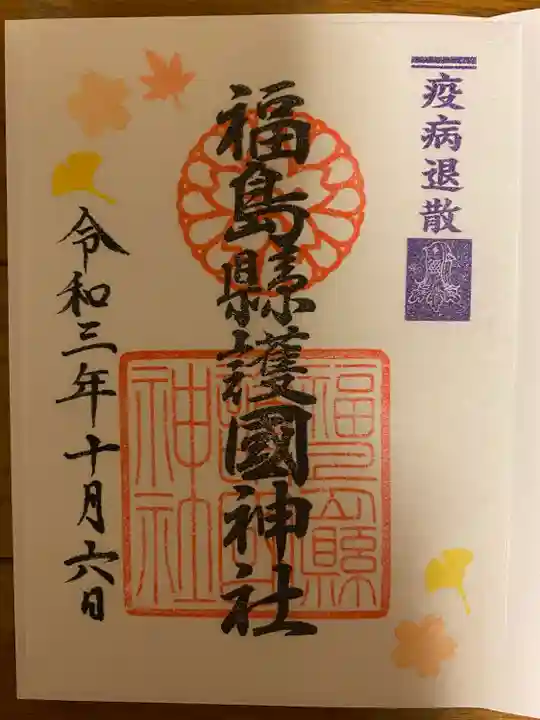 疫病退散
福島縣護國神社
福島縣護國神社
令和三年十月六日